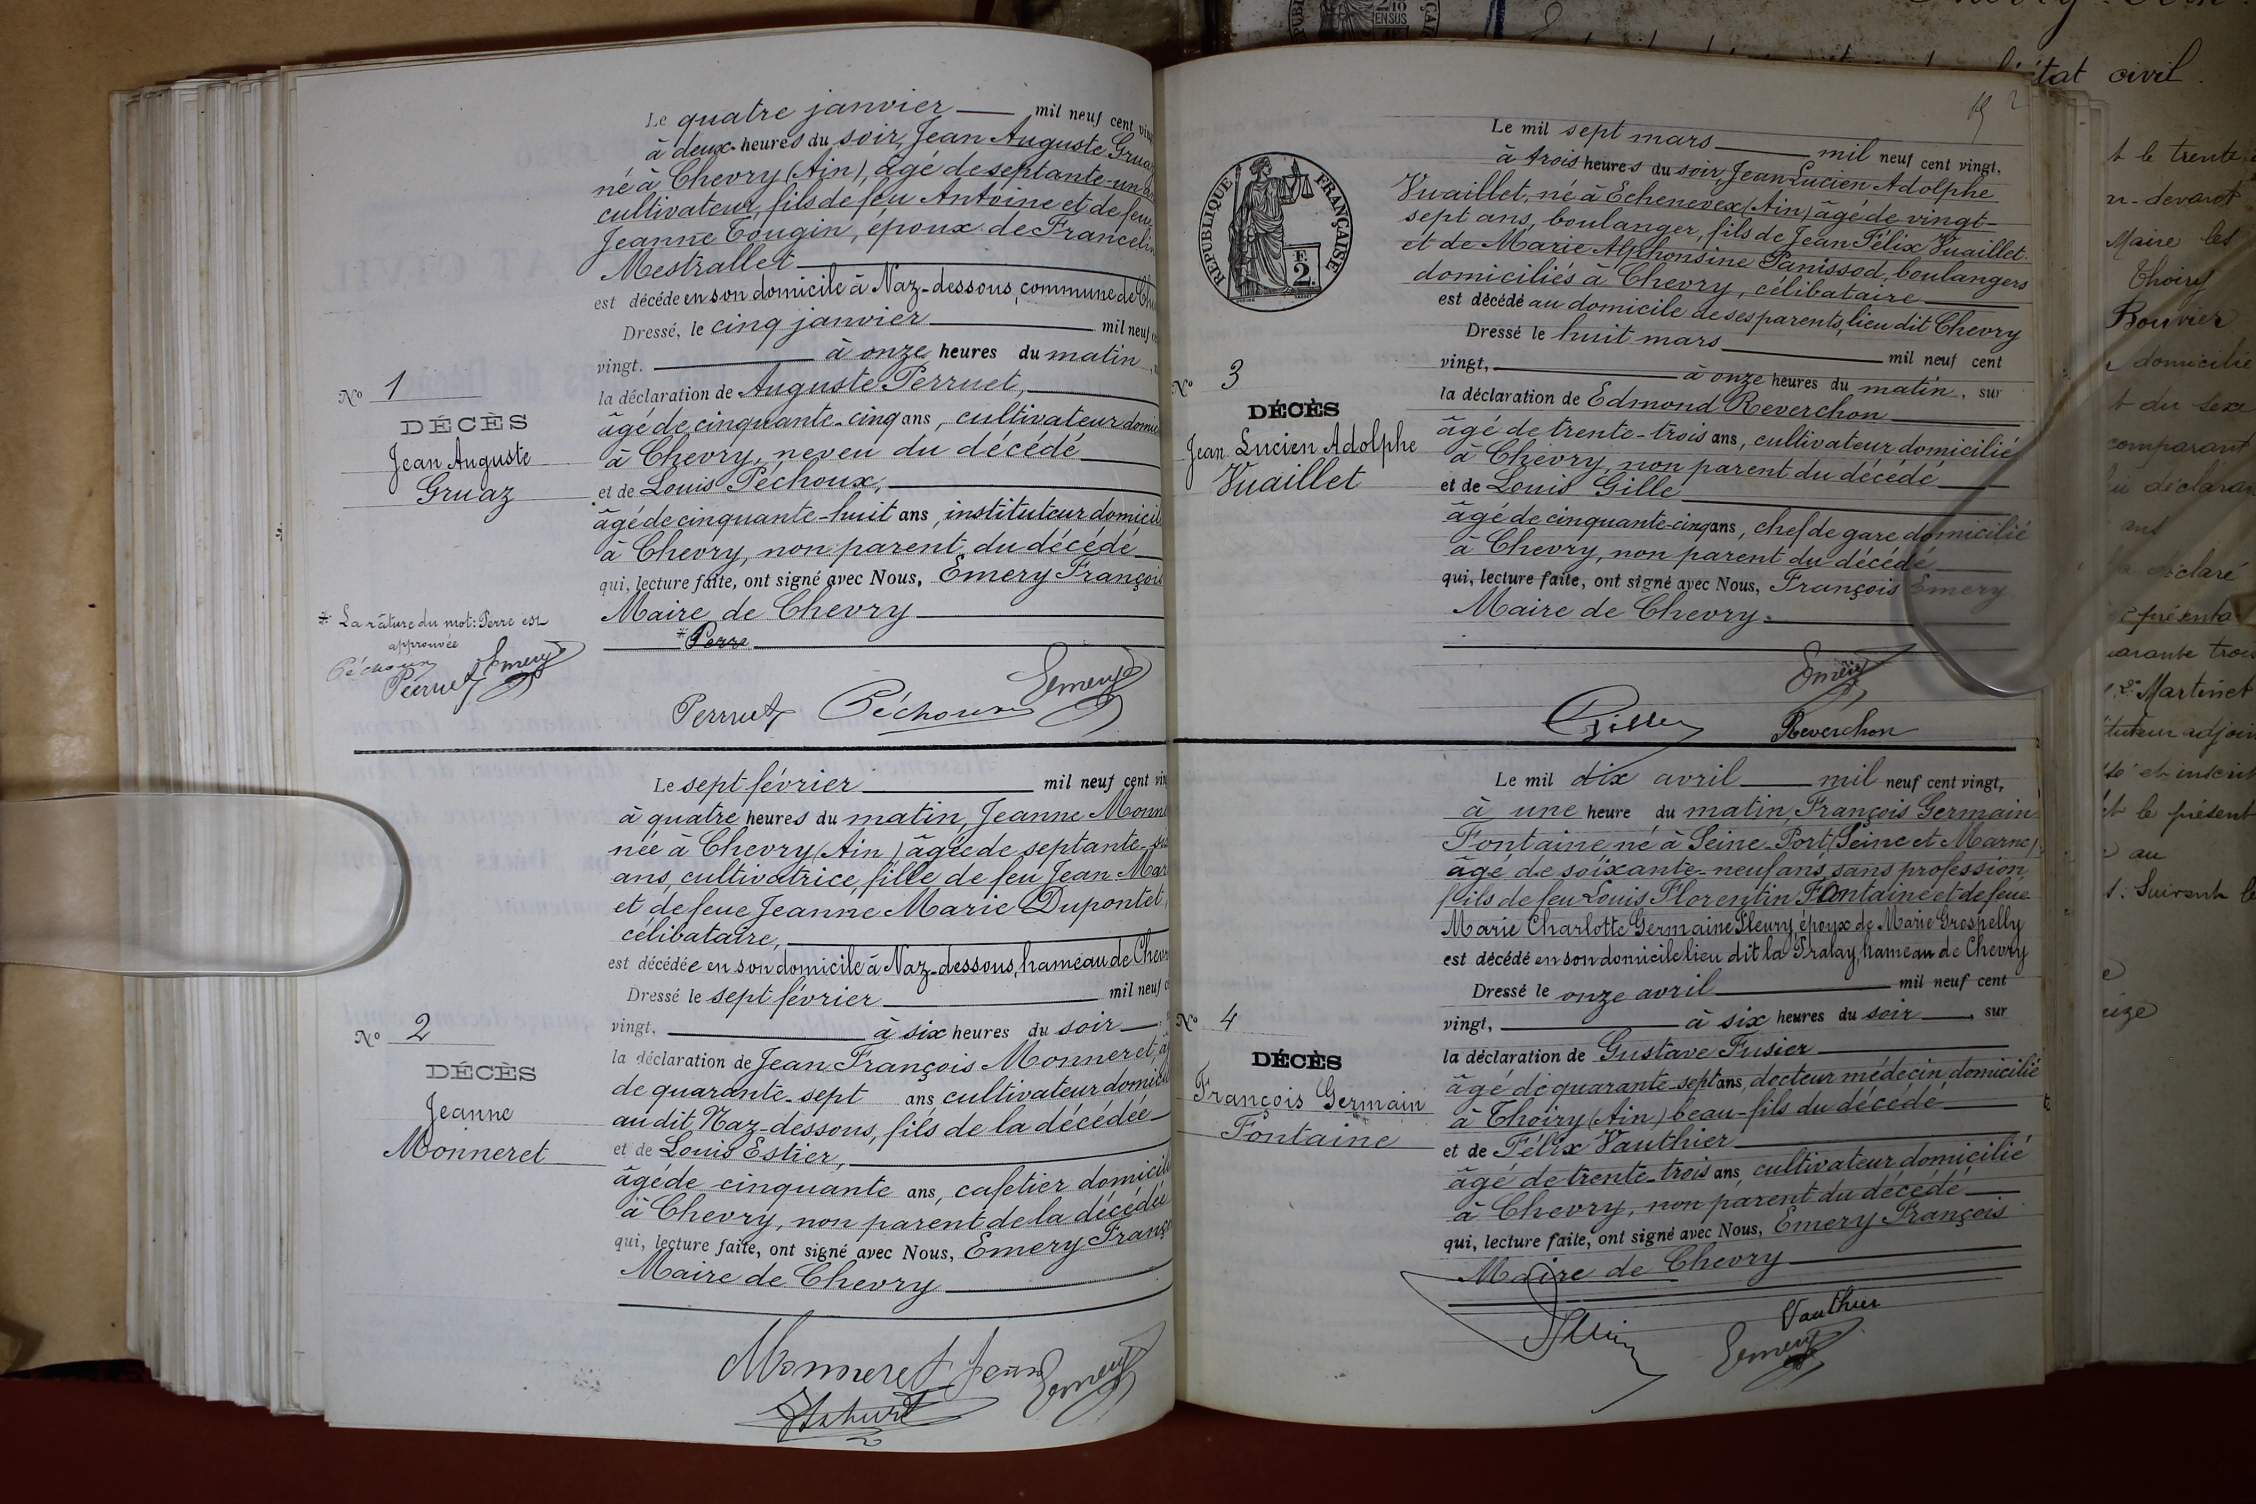 Le quatre janvier mil neuf cent
à deux heures du soir, Jean Auguste
né à Chevry (Ain), âgé de septante-un
cultivateur, fils de feu Antoine et de feue
Jeanne Tougin, époux de
Mestrallet
est décédé en son domicile à Naz-dessous, commune de
Dressé, le cinq janvier mil neuf
vingt. à onze heures du matin
la déclaration de Auguste Perruet,
âgé de cinquante-cinq ans, cultivateur
à Chevry, neveu du décédé
et de Louis Péchoux,
âgé de cinquante-huit ans, instituteur
à Chevry, non parent du décédé
qui, lecture faite, ont signé avec Nous, Emery François
Maire de Chevry
* Perre
Nº 1
DÉCÈS
Jean Auguste
Gruaz
* La râture du mot: Perre est
approuvée
Péchoux Emery
Perruet
Perruet Péchoux Emery
Le sept février mil neuf cent
à quatre heures du matin, Jeanne
née à Chevry (Ain) âgée de
ans, cultivatrice, fille de feu Jean
et de feue Jeanne Marie Dupontet,
célibataire,
est décédée en son domicile à Naz-dessous, hameau de
Dressé le sept février mil neuf
vingt, à six heures du soir
la déclaration de Jean François Monneret,
de quarante-sept ans cultivateur
au dit Naz-dessous, fils de la décédée
et de Louis Estier,
âgé de cinquante ans, cafetier
à Chevry, non parent de la décédée
qui, lecture faite, ont signé avec Nous, Emery
Maire de Chevry
Nº 2
DÉCÈS
Jeanne
Monneret
Monneret Jean Emery
Le mil sept mars mil neuf cent vingt,
à trois heures du soir, Jean Lucien Adolphe
Vuaillet, né à Echenevex (Ain) âgé de vingt-
sept ans, boulanger, fils de Jean Félix Vuaillet
et de Marie Alphonsine Panissod, boulangers
domiciliés à Chevry, célibataire
est décédé au domicile de ses parents, lieu dit Chevry
Dressé le huit mars mil neuf cent
vingt, à onze heures du matin, sur
la déclaration de Edmond Reverchon
âgé de trente-trois ans, cultivateur domicilié
à Chevry, non parent du décédé
et de Louis Gille
âgé de cinquante-cinq ans, chef de gare domicilié
à Chevry, non parent du décédé
qui, lecture faite, ont signé avec Nous, François Emery
Maire de Chevry.
RÉPUBLIQUE FRANÇAISE
F.
2.
Nº 3
DÉCÈS
Jean Lucien Adolphe
Vuaillet
Emery
Gille Reverchon
Le mil dix avril mil neuf cent vingt,
à une heure du matin, François Germain
Fontaine né à Seine-Port (Seine et Marne)
âgé de soixante-neuf ans, sans profession,
fils de feu Louis Florentin Fontaine et de feue
Marie Charlotte Germaine Fleury, époux de Marie Grospelly
est décédé en son domicile lieu dit la Pralay, hameau de Chevry
Dressé le onze avril mil neuf cent
vingt, à six heures du soir, sur
la déclaration de Gustave Fusier
âgé de quarante-sept ans, docteur médecin domicilié
à Thoiry (Ain) beau-fils du décédé
et de Félix Vauthier
âgé de trente-trois ans, cultivateur domicilié
à Chevry, non parent du décédé
qui, lecture faite, ont signé avec Nous, Emery François
Maire de Chevry
Nº 4
DÉCÈS
François Germain
Fontaine
Vauthier
Emery
état civil.
le trente
devant
Maire
Thoiry
Bouvier
domicilié
du sexe
comparant
ans
déclaré
trois
Martinet
adjoint
et inscrit
le présent
au
Suivent